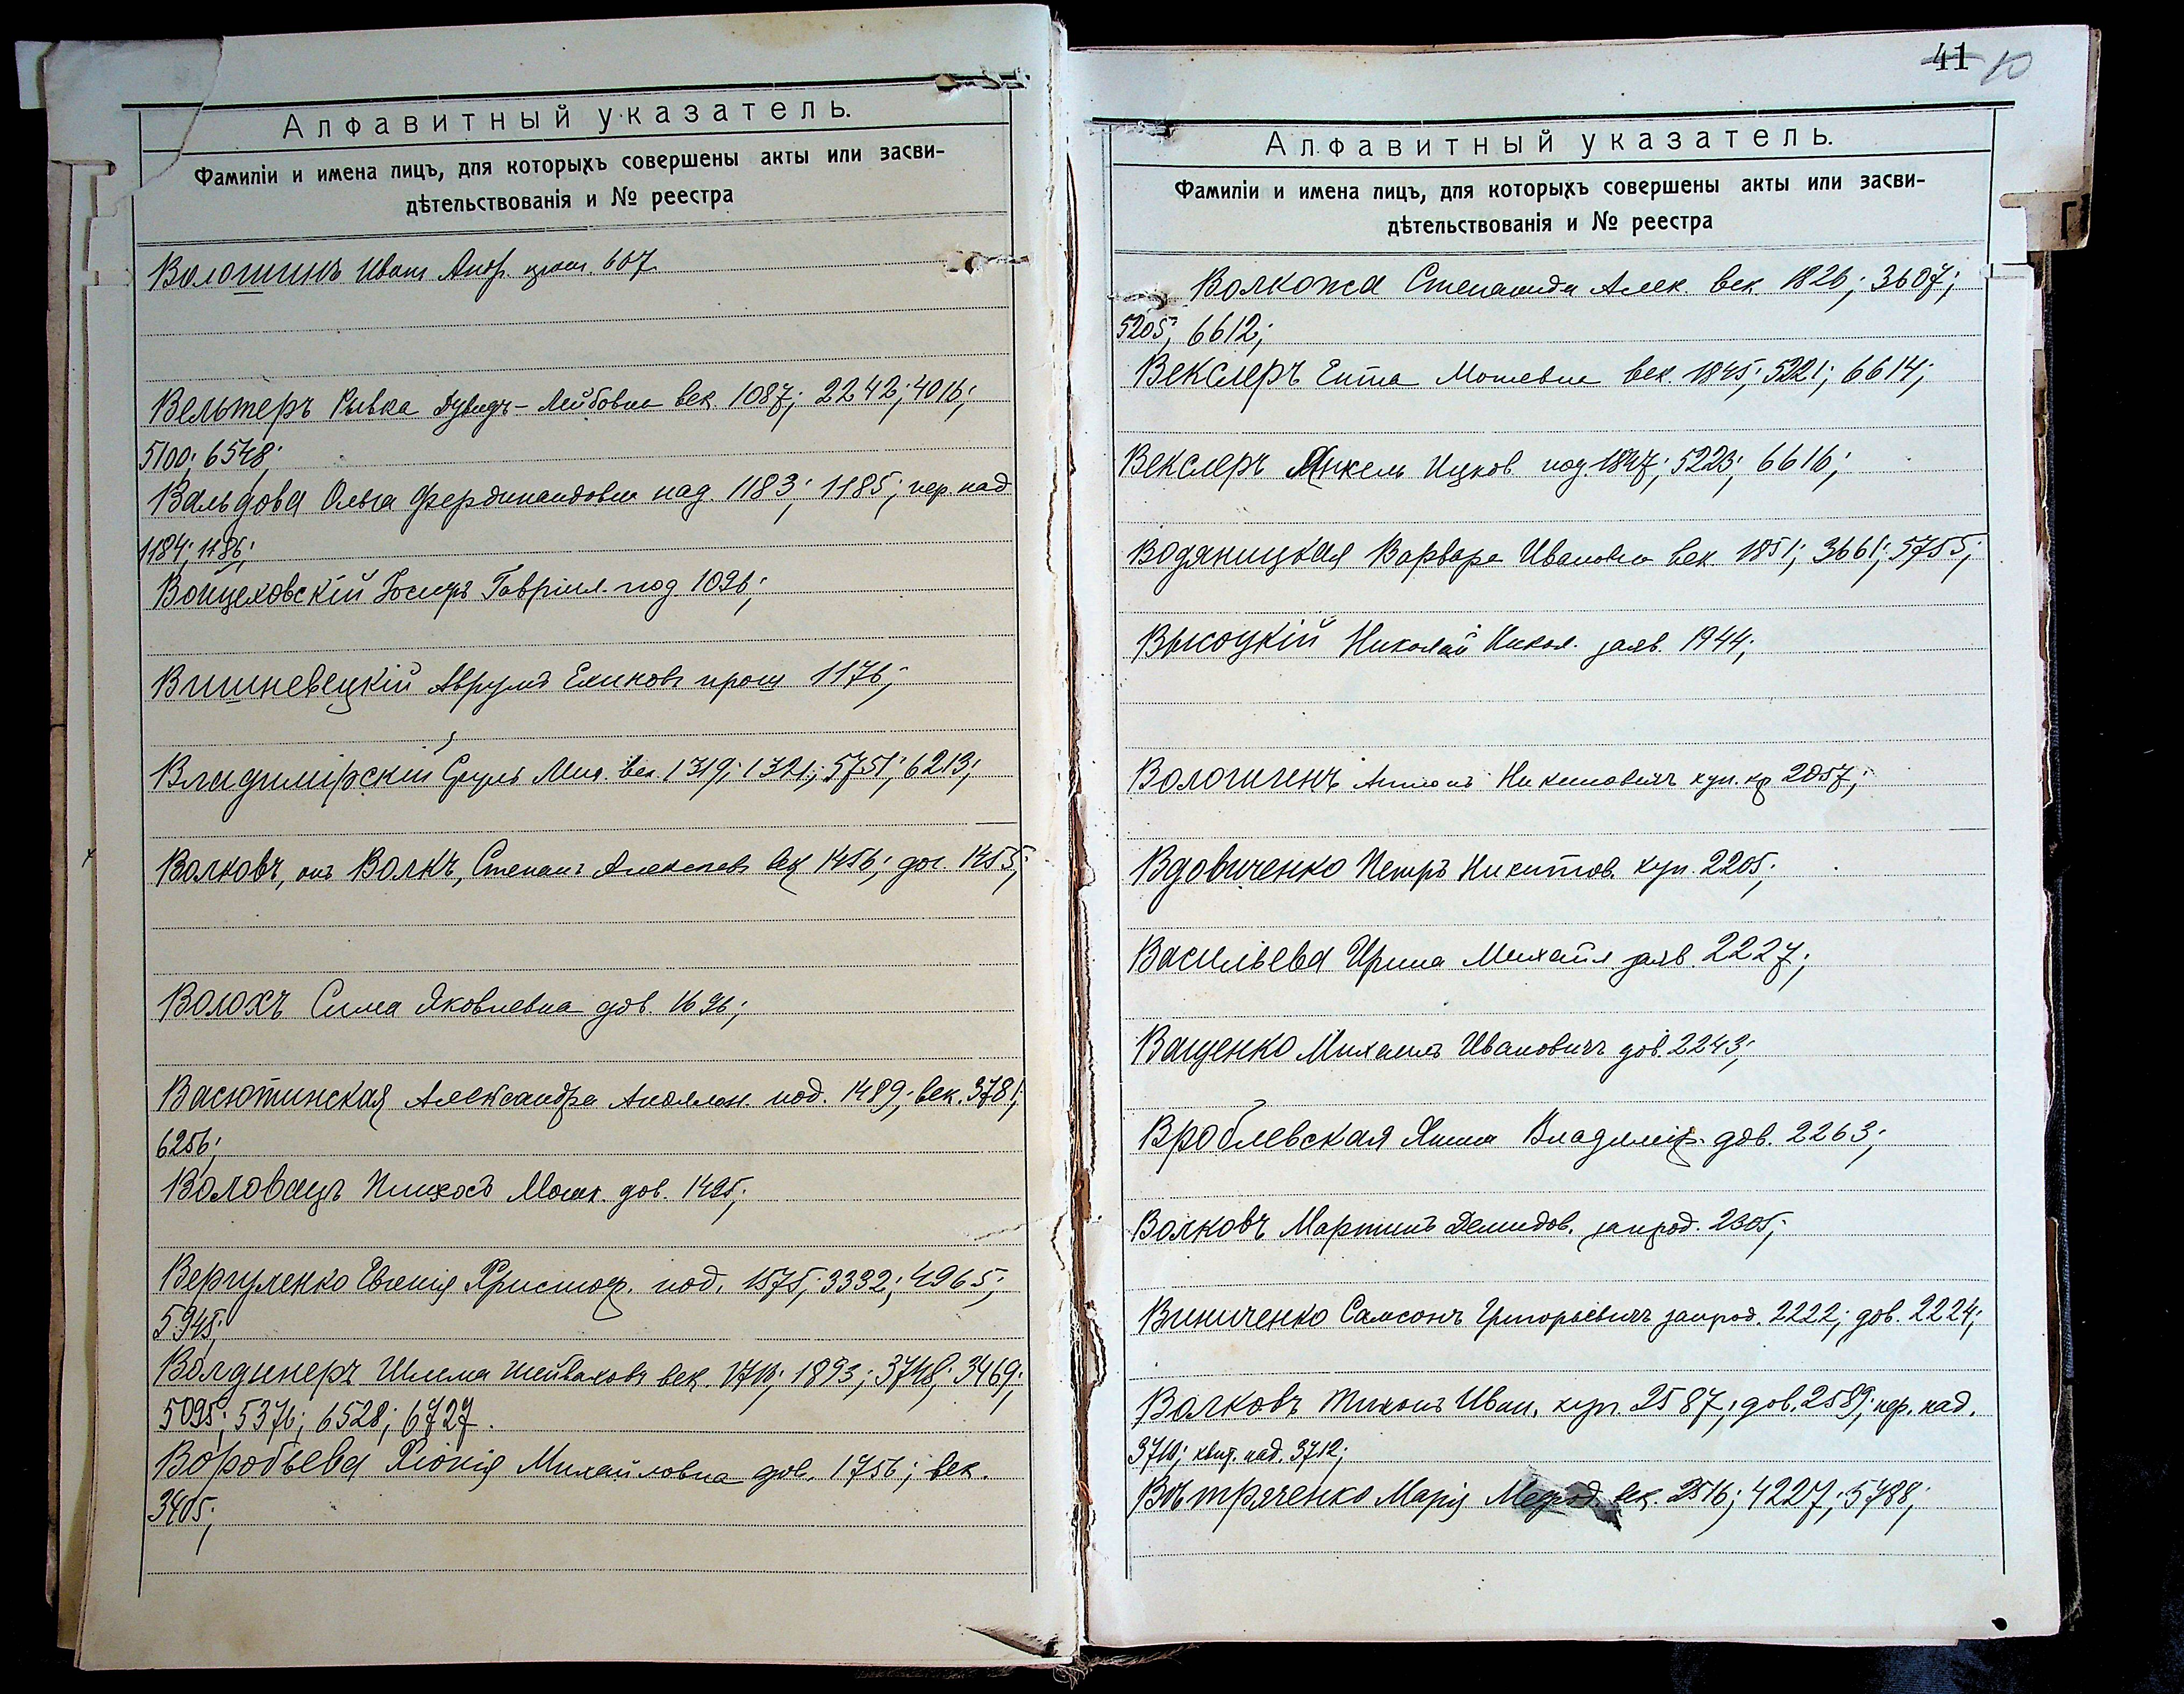 Алфавитный указатель.
Фамиліи и имена лицъ, для которыхъ совершены акты или засви-
дѣтельствованія и № реестра
Волошинъ Иванъ 607.
Вельтеръ Рывка Дувидъ-Лейбовна век. 1087; 2242; 4016;
5100; 6548;
Вальдова Ольга Фердинандовна над. 1183; 1185; пер. над
1184; 1186;
Войцеховскій Іосифъ Гавріил. под 1096;
Вишневецкій Аврумъ прош 1176;
Владимірскій Сруль век. 1319; 1321; 5751; 6213;
Волковъ, онъ Волкъ, Степанъ Алексеев век 1456; дог. 1455;
Волохъ Сима Яковлевна дов. 1696;
Васютинская Александра Аполлон. под. 1489; век. 3781;
6256;
Воловецъ Пинхосъ Мошк. дов. 1495;
Вергуленко Евгенія Христоф. под. 1575; 3332; 4965;
5945;
Волдинеръ Шлема век. 1716; 1893; 3748; 3469;
5095; 5376; 6528; 6727.
Воробьева Хіонія Михайловна дов. 1756; век.
3405;
41 10
Алфавитный указатель.
Фамиліи и имена лицъ, для которыхъ совершены акты или засви-
дѣтельствованія и № реестра
Г
Волкожа Степанида Алек. век. 1826; 3607;
5205; 6612;
Векслеръ Ента Мошевна век. 1845; 5221; 6614;
Векслеръ Янкель Ицков. под. 1847; 5223; 6616;
Водяницкая Варвара Ивановна век. 1851; 3661; 5755;
Высоцкій Николай Никол. заяв. 1944;
Вологиченъ Антонъ куп. кр 2057;
Вдовиченко Петръ Никитов. куп. 2205;
Васильева Ирина Михайл заяв. 2227;
Ващенко Михаилъ Ивановичъ дов. 2243;
Вроблевская Янина Владимір. дов. 2263;
Волковъ Мартинъ Демидов. запрод. 2305;
Виниченко Самсонъ Григорьевичъ запрод. 2222; дов. 2224;
Волковъ Тихонъ Иван. куп. 2587; дов. 2589; пер. над.
3710; квит. над. 3712;
Вѣтряченко Марія Мефод. век. 2516; 4227; 5788;